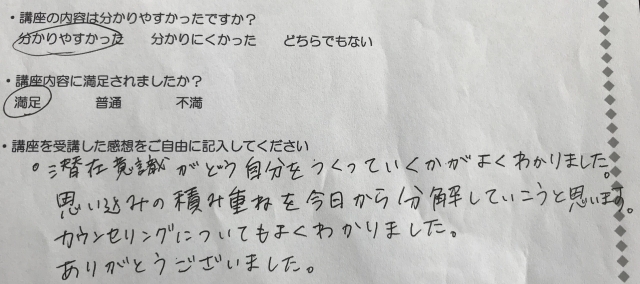 ・講座の内容は分かりやすかったですか?
分かりやすかった 分かりにくかった どちらでもない
・講座内容に満足されましたか?
満足 普通 不満
・講座を受講した感想をご自由に記入してください
。潜在意識がどう自分をつくっていくかがよくわかりました。
思い込みの積み重ねを今日から分解していこうと思います。
カウンセリングについてもよくわかりました。
ありがとうございました。